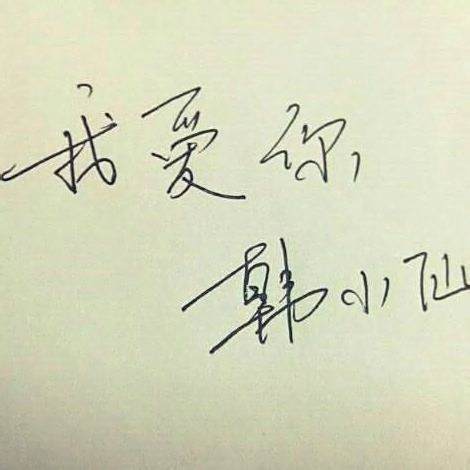 我爱你，
韩小仙